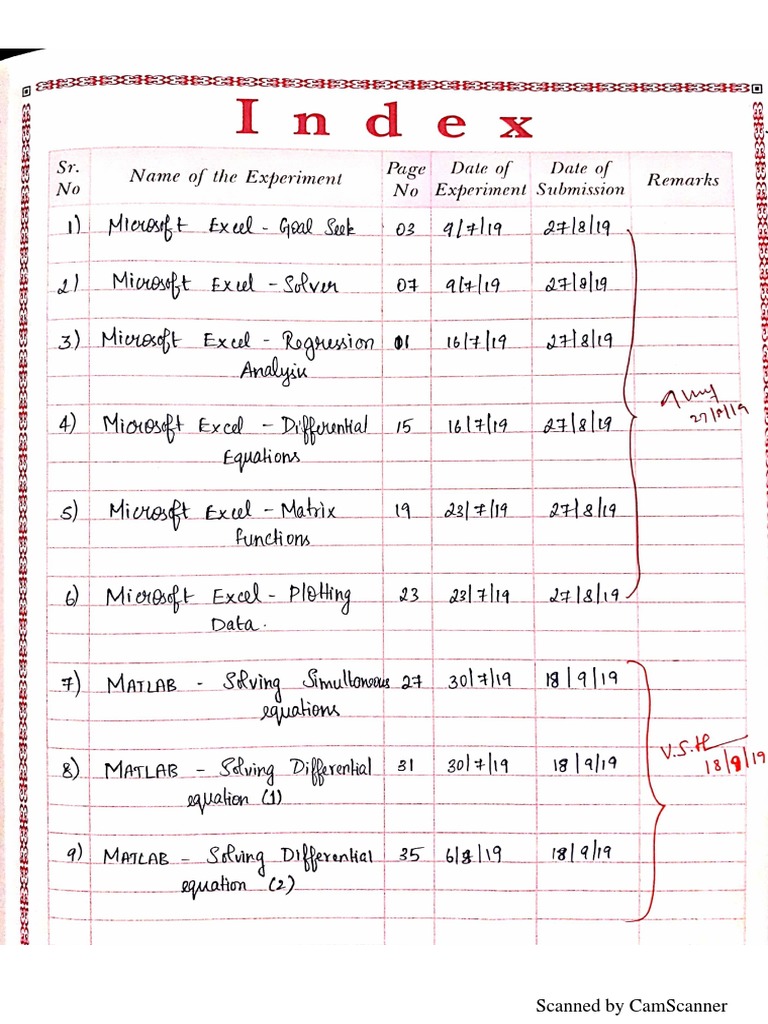 Index
Sr. No Name of the Experiment Page No Date of Experiment Date of Submission Remarks
1) Microsoft Excel - Goal Seek 03 9/7/19 27/8/19
2) Microsoft Excel - Solver 07 9/7/19 27/8/19
3) Microsoft Excel - Regression 16/7/19 27/8/19
Analysis
27/8/19
4) Microsoft Excel - Differential 15 16/7/19 27/8/19
Equations
5) Microsoft Excel - Matrix 19 23/7/19 27/8/19
functions
6) Microsoft Excel - Plotting 23 23/7/19 27/8/19
Data.
7) MATLAB - Solving Simultaneous 27 30/7/19 18/9/19
equations
V.S.H
18/9/19
8) MATLAB - Solving Differential 31 30/7/19 18/9/19
equation (1)
9) MATLAB - Solving Differential 35 6/8/19 18/9/19
equation (2)
Scanned by CamScanner